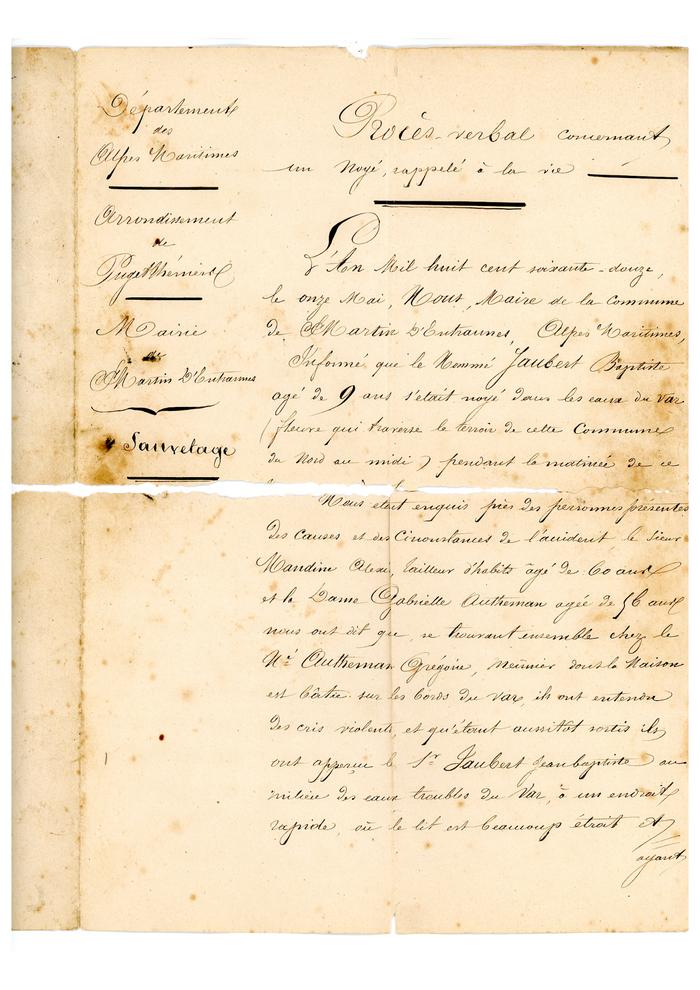 Département
des
Alpes Maritimes
Arrondissement
de
Puget Théniers
Mairie
de
St Martin D'Entraunes
Sauvetage
Procès-verbal concernant
un Noyé, rappelé à la vie
L'An Mil huit cent soixante-douze,
le onze Mai, Nous, Maire de la Commune
de St Martin D'Entraunes, Alpes Maritimes,
Informé, que le Nommé Jaubert Baptiste
agé de 9 ans s'était noyé dans les eaux du Var
(fleuve qui traverse le terroir de cette Commune
du Nord au midi) pendant la matinée de ce
Nous étant enquis près des personnes présentes
des causes et des Circonstances de l'accident le Sieur
Mandine Alexis, tailleur d'habits âgé de 60 ans
et la Dame Gabrielle Autheman agée de 56 ans
nous ont dit que, se trouvant ensemble chez le
Né Autheman Grégoire, meunier dont la Maison
est bâtie sur les bords du Var, ils ont entendu
des cris violents, et qu'étant aussitôt sortis ils
ont apperçu le Sr Jaubert Jean baptiste au
milieu des eaux troubles du Var, à un endroit
rapide, où le lit est beaucoup étroit et
ayant